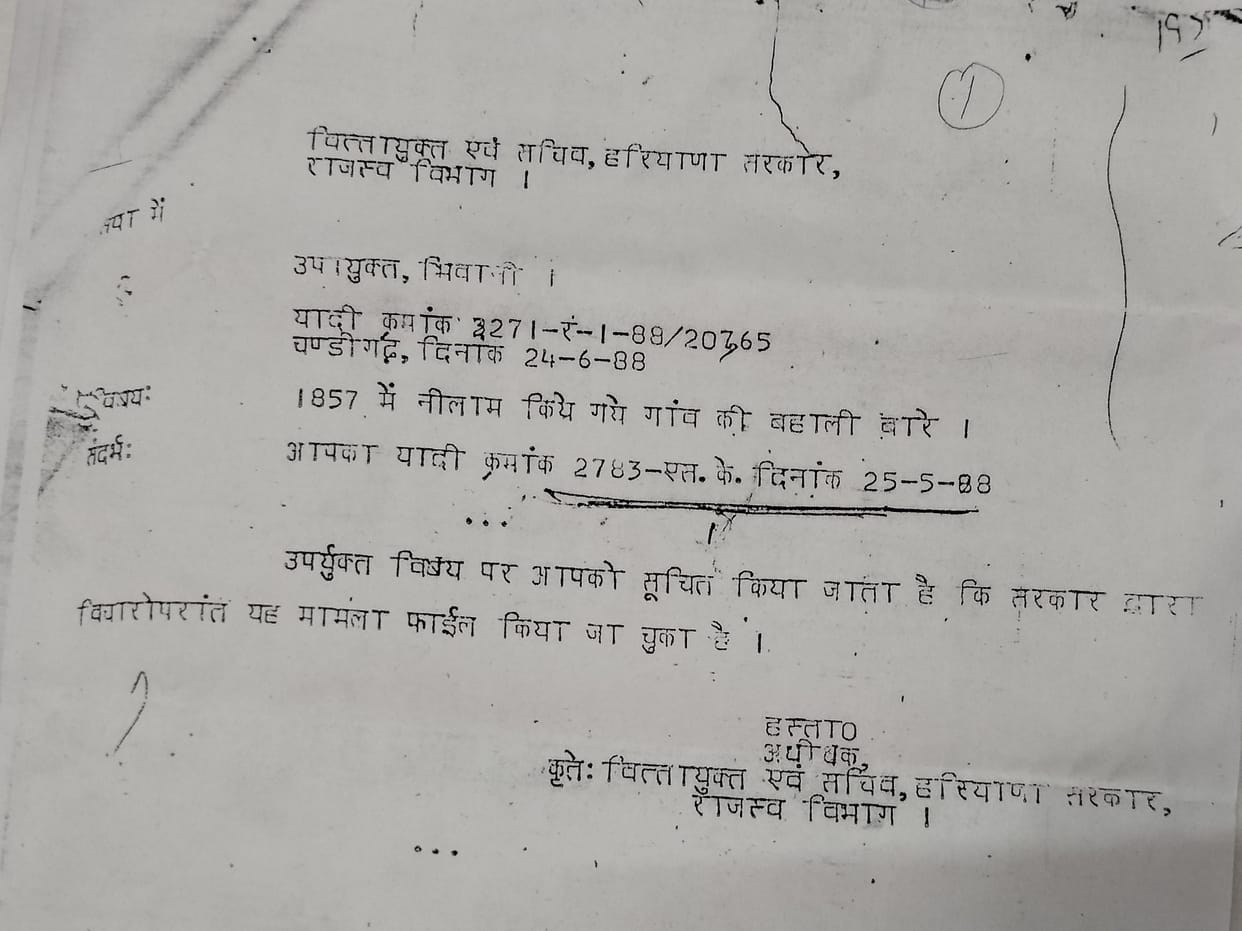 1
वित्तायुक्त एवं सचिव, हरियाणा सरकार,
राजस्व विभाग ।
सेवा में
उपायुक्त, भिवानी ।
यादी क्रमांक 3271-रं-1-88/20765
चण्डीगढ़, दिनांक 24-6-88
विषय: 1857 में नीलाम किये गये गांव की बहाली बारे ।
संदर्भ: आपका यादी क्रमांक 2783-एस.के. दिनांक 25-5-88
...
उपर्युक्त विषय पर आपको सूचित किया जाता है कि सरकार द्वारा
विचारोपरांत यह मामला फाईल किया जा चुका है ।
हस्ता0
अधीक्षक,
कृते: वित्तायुक्त एवं सचिव, हरियाणा सरकार,
राजस्व विभाग ।
...